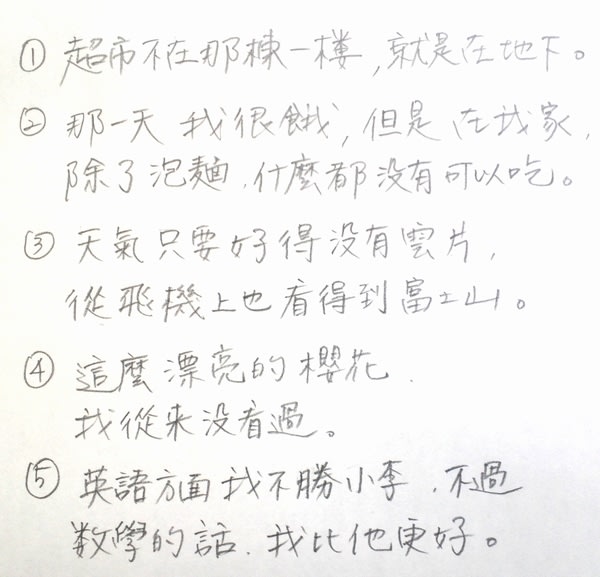 ① 超市不在那棟一樓,就是在地下。
② 那一天 我很餓,但是在我家,
除了泡麵,什麼都没有可以吃。
③ 天氣只要好得没有雲片,
從飛機上也看得到富士山。
④ 這麼漂亮的櫻花,
我從来没看過。
⑤ 英語方面我不勝小李,不過
数學的話,我比他更好。